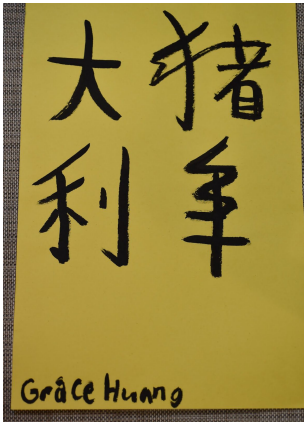 猪年
大利
Grace Huang